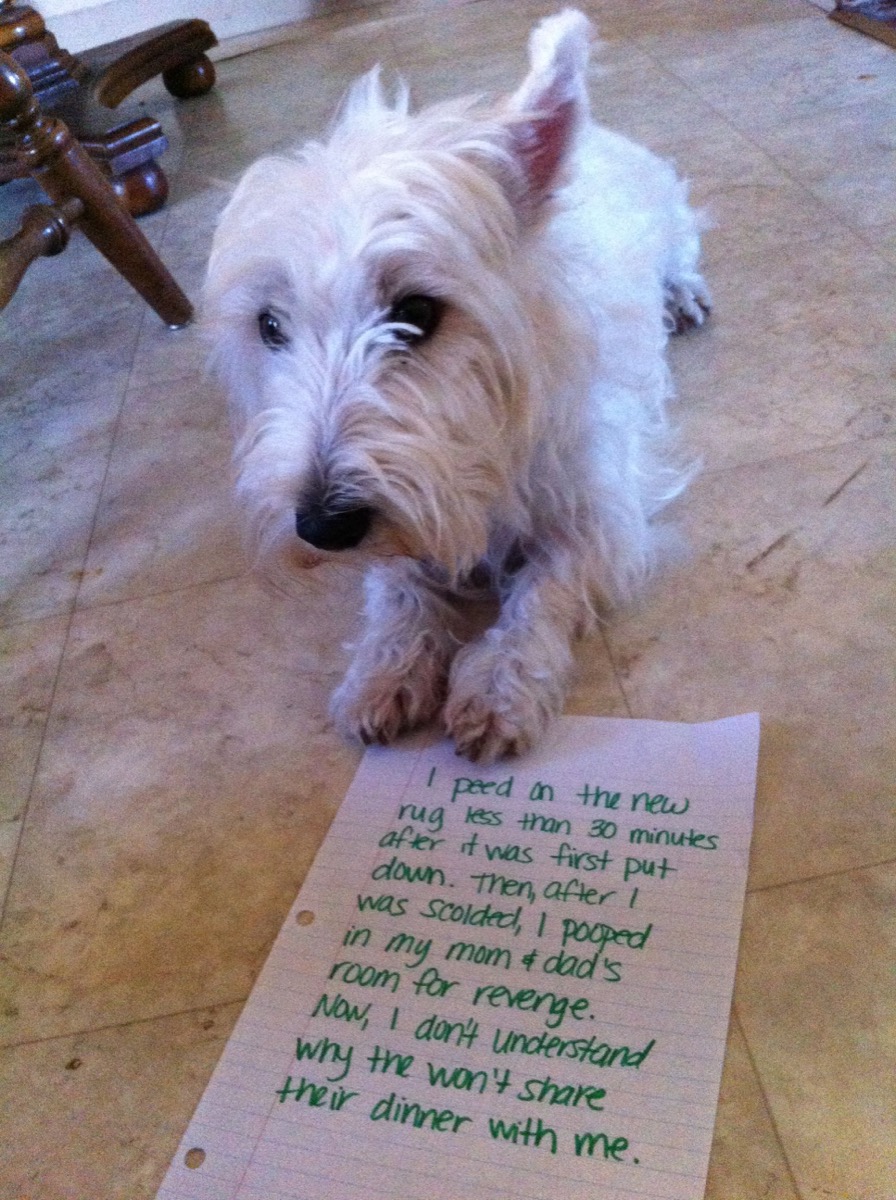 I peed on the new
rug less than 30 minutes
after it was first put
down. Then, after I
was scolded, I pooped
in my mom & dad's
room for revenge.
Now, I don't understand
why the won't share
their dinner with me.